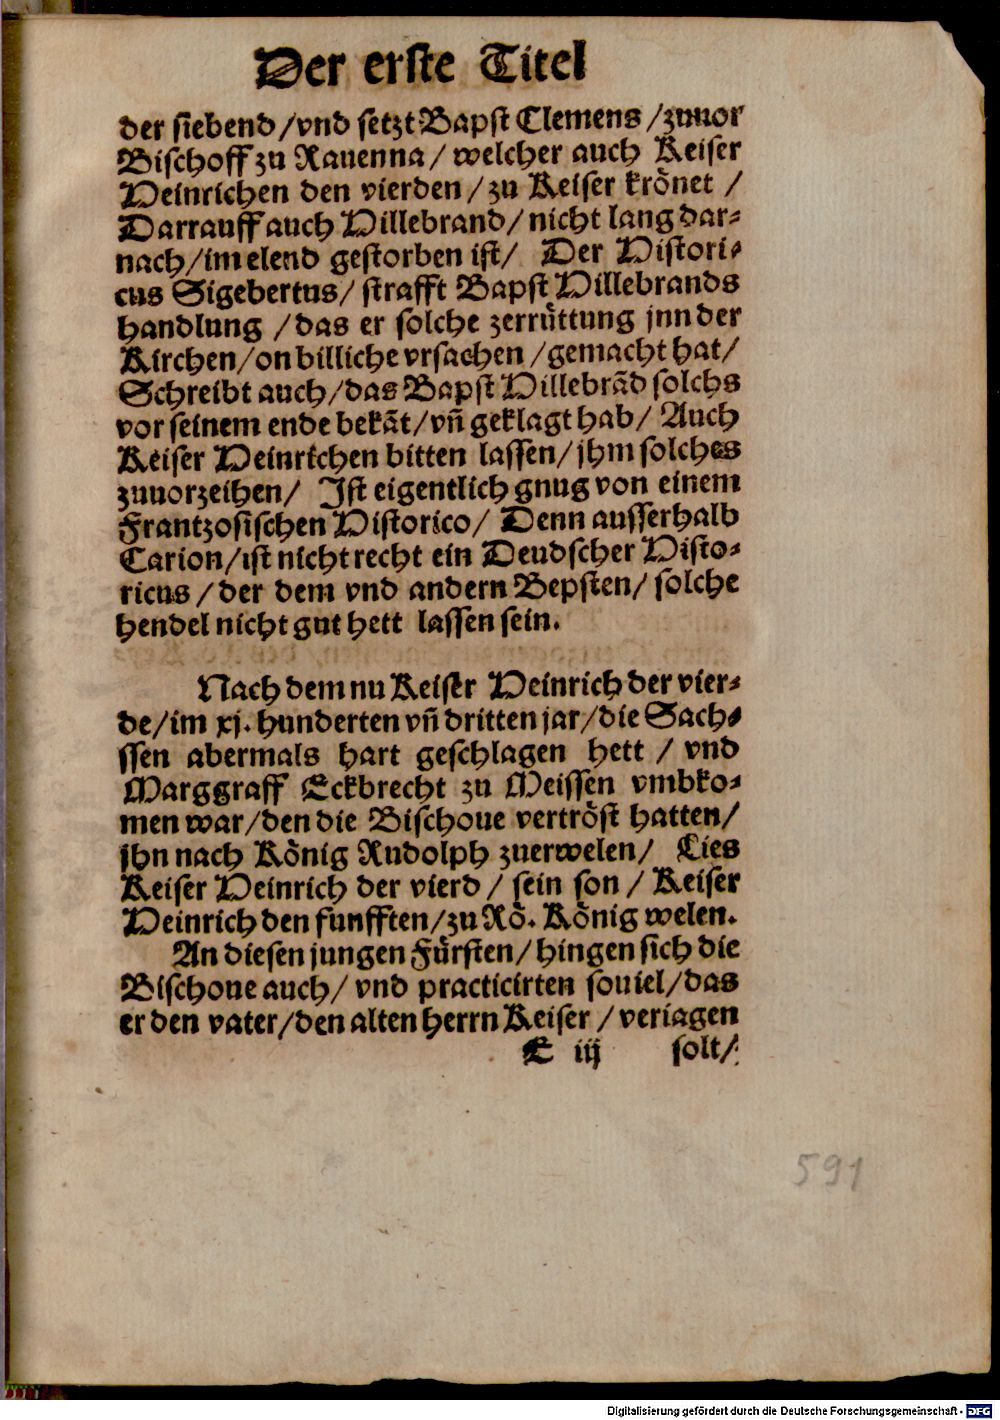 Der erste Titel
der siebend /vnd setzt Bapst Clemens /zuuor
Bischoff zu Rauenna / welcher auch Keiser
Heinrichen den vierden / zu Keiser krönet /
Darrauff auch Hillebrand / nicht lang dar-
nach / im elend gestorben ist / Der Histori-
cus Sigebertus / strafft Bapst Hillebrands
handlung / das er solche zerrüttung jnn der
Kirchen / on billiche vrsachen / gemacht hat /
Schreibt auch / das Bapst Hillebrãd solchs
vor seinem ende bekãt / vñ geklagt hab / Auch
Keiser Heinrichen bitten lassen / jhm solches
zuuorzeihen / Ist eigentlich gnug von einem
Frantzosischen Historico / Denn ausserhalb
Carion / ist nicht recht ein Deudscher Histo-
ricus / der dem vnd andern Bepsten / solche
hendel nicht gut hett lassen sein.
Nach dem nu Keiser Heinrich der vier-
de / im xj. hunderten vñ dritten jar / die Sach-
ssen abermals hart geschlagen hett / vnd
Marggraff Eckbrecht zu Meissen vmbko-
men war / den die Bischoue vertröst hatten /
jhn nach König Rudolph zuerwelen / Lies
Keiser Heinrich der vierd / sein son / Keiser
Heinrich den funfften / zu Rö. König welen.
An diesen jungen Fürsten / hingen sich die
Bischoue auch / vnd practicirten souiel / das
er den vater / den alten herrn Keiser / veriagen
E iij solt /
591
Digitalisierung gefördert durch die Deutsche Forschungsgemeinschaft - DFG